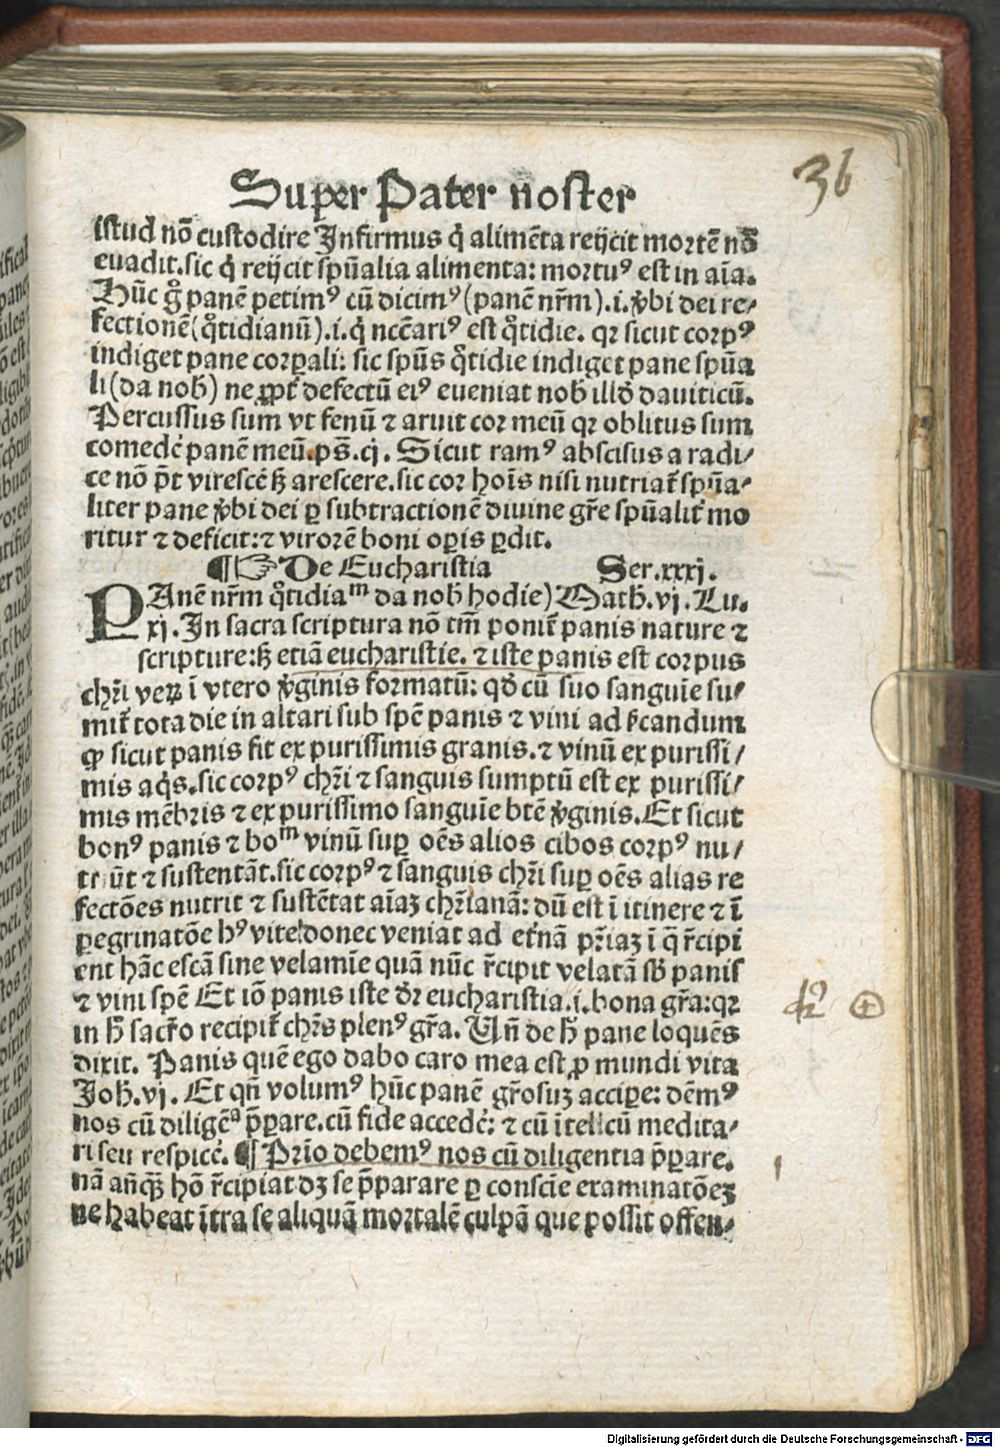 Super Pater noster
36
istud nõ custodire Infirmus q̇ alimẽta reijcit mortẽ nõ
euadit. sic q̇ reijcit spũalia alimenta: mortuꝰ est in aĩa.
Hũc gͦ panẽ petimꝰ cũ dicimꝰ (panẽ nr̃m) .i. ꝟbi dei re⸗
fectionẽ (qͦtidianũ) .i. q̇ ncc̃ariꝰ est qͦtidie. qꝛ sicut corpꝰ
indiget pane corꝑali: sic spũs qͦtidie indiget pane spũa
li (da nob̃) ne ꝓpt̃ defectũ eiꝰ eueniat nob̃ illd̃ dauiticũ.
Percussus sum vt fenũ ⁊ aruit cor meũ qꝛ oblitus sum
comedẽ panẽ meũ. ps̃. cj. Sicut ramꝰ abscisus a radi⸗
ce nõ p̃t virescẽ sꝫ arescere. sic cor hoĩs nisi nutriat̃ spũa⸗
liter pane ꝟbi dei ꝑ subtractionẽ diuine gr̃e spũalit̃ mo
ritur ⁊ deficit: ⁊ virorẽ boni oꝑis ꝑdit.
¶ ☞ De Eucharistia Ser. xxxj.
PAnẽ nr̃m qͦtidiaᵐ da nob̃ hodie) Math. vj. Lu.
xj. In sacra scriptura nõ tm̃ ponit̃ panis nature ⁊
scripture: sꝫ etiã eucharistie. ⁊ iste panis est corpus
chr̃i veꝝ ĩ vtero ꝟginis formatũ: qd̃ cũ suo sanguĩe su⸗
mit̃ tota die in altari sub spẽ panis ⁊ vini ad
ꝙ sicut panis fit ex purissimis granis. ⁊ vinũ ex purissi⸗
mis aq̇s. sic corpꝰ chr̃i ⁊ sanguis sumptũ est ex purissi⸗
mis mẽbris ⁊ ex purissimo sanguĩe btẽ ꝟginis. Et sicut
bonꝰ panis ⁊ boᵐ vinũ suꝑ oẽs alios cibos corpꝰ nu⸗
triũt ⁊ sustentãt. sic corpꝰ ⁊ sanguis chr̃i suꝑ oẽs alias re
fectões nutrit ⁊ sustẽtat aĩaꝫ chr̃ianã: dũ est ĩ itinere ⁊ ĩ
ꝑegrinatõe hꝰ vite donec veniat ad et̃nã pr̃iaꝫ ĩ q̃ r̃cipi
ent hãc escã sine velamĩe quã nũc r̃cipit velatã sb̃ panis
⁊ vini spẽ Et iõ panis iste dr̃ eucharistia .i. bona gr̃a: qꝛ
in h̃ sacr̃o recipit̃ chr̃s plenꝰ gr̃a. Uñ de h̃ pane loquẽs
dixit. Panis quẽ ego dabo caro mea est ꝓ mundi vita
Joh̃. vj. Et qñ volumꝰ hũc panẽ gr̃osuꝫ acciꝑe: dẽmꝰ
nos cũ diligẽᵃ p̃ꝑare. cũ fide accedẽ: ⁊ cũ ĩtellcũ medita⸗
ri seu respicẽ. ¶ Pr̃io debemꝰ nos cũ diligentia p̃ꝑare.
nã añqꝫ hõ r̃cipiat dꝫ se p̃parare ꝑ consciẽ examinatõeꝫ
ne habeat ĩtra se aliquã mortalẽ culpã que possit offen⸗
1
Digitalisierung gefördert durch die Deutsche Forschungsgemeinschaft - DFG